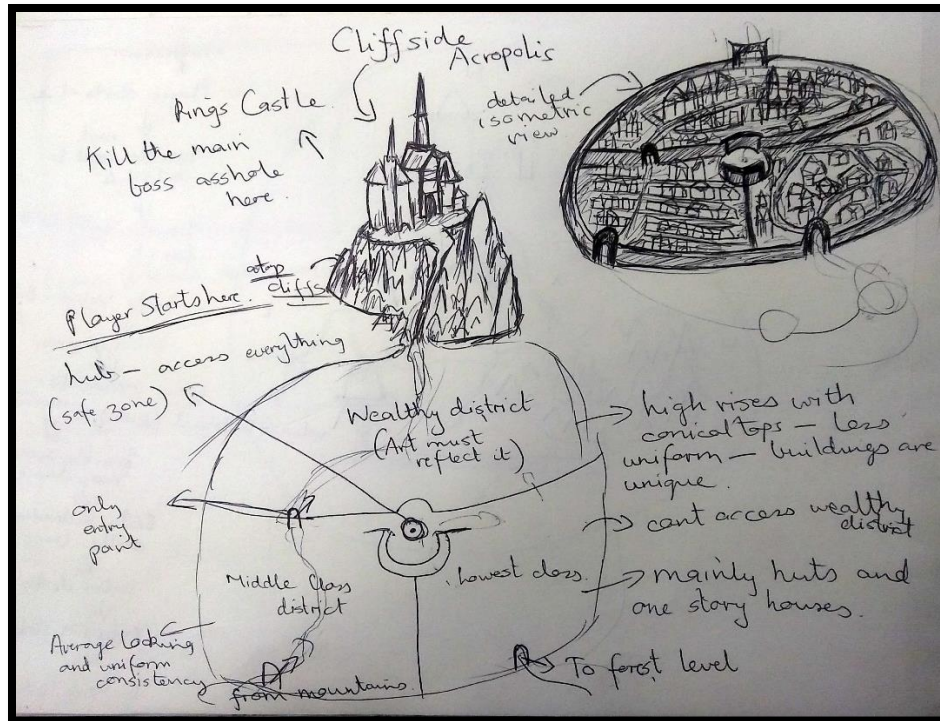 Cliffside
Acropolis
Kings Castle.
Kill the main
boss asshole
here.
detailed
isometric
view
atop
cliffs
Player Starts here.
hub – access everything
(safe zone)
Wealthy district
(Art must
reflect it)
high rises with
conical tops – Less
uniform – buildings are
unique.
only
entry
point
cant access wealthy
district
Middle Class
district
Lowest class.
mainly huts and
one story houses.
Average looking
and uniform
consistency
from mountains.
To forest level